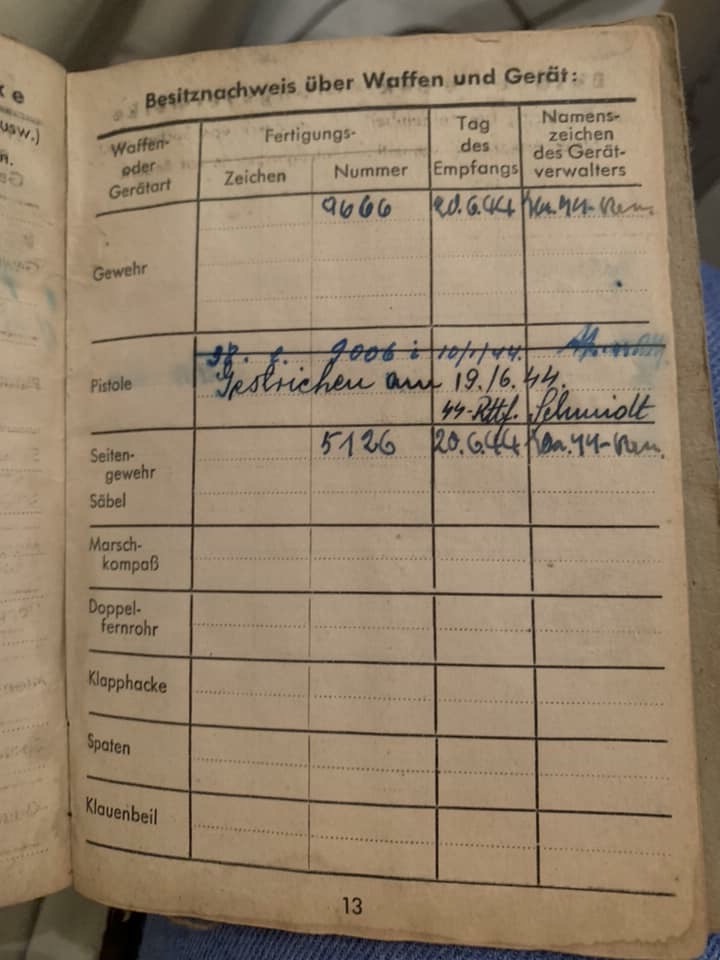 k e
usw.)
n.
Besitznachweis über Waffen und Gerät:
Waffen-
oder
Gerätart
Fertigungs-
Zeichen
Nummer
Tag
des
Empfangs
Namens-
zeichen
des Gerät-
verwalters
Gewehr
9666 20.6.44
Pistole
9006 i 10/1/44.
Gestrichen am 19./6.44.
44-Rttf. Schmidt
Seiten-
gewehr
5126 20.6.44
Säbel
Marsch-
kompaß
Doppel-
fernrohr
Klapphacke
Spaten
Klauenbeil
13